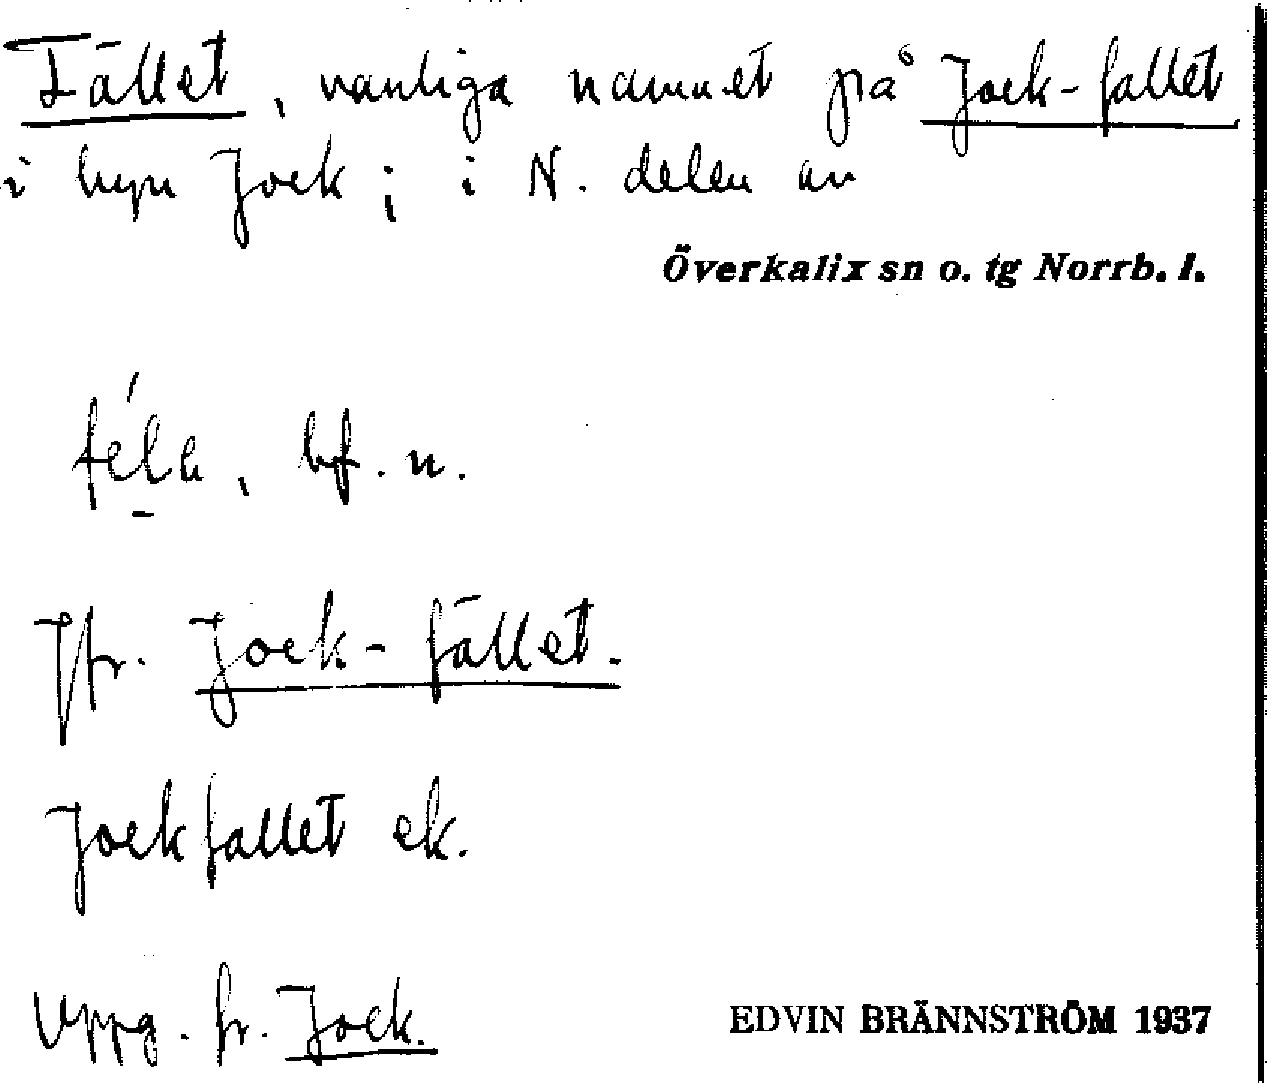 Fället, vanliga namnet på Jock-fallet
i byn Jock; i N. delen av
Överkalix sn o. tg Norrb. l.
féla, bf. n.
Jfr. Jock-fället.
Jockfallet ek.
Uppg. fr. Jock.
EDVIN BRÄNNSTRÖM 1937